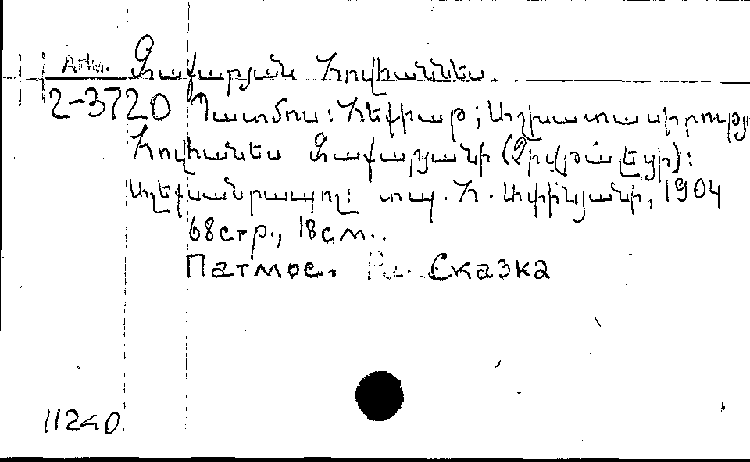 Arm. Զաքարյան Հովհաննես.
2-3720 Պատմոս: Հեքիաթ; Աշխատասիրությ
Հովհաննես Զաքարյանի
Ալեքսանդրապոլ: տպ. Հ. Ափինյանի, 1904
68стр., 18см.
Патмос. Сказка
11240